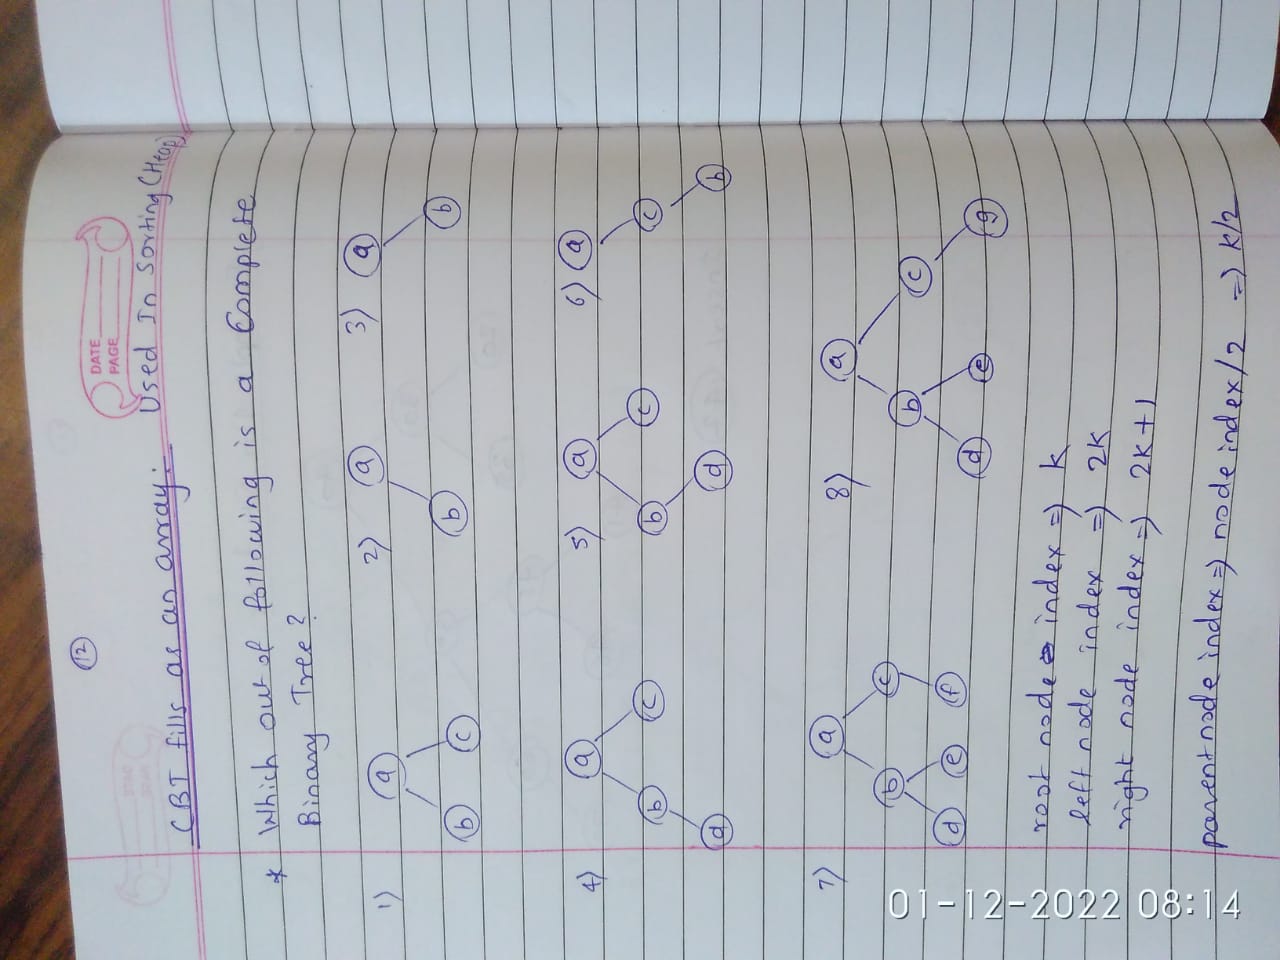 12
DATE
PAGE
CBT fills as an array: Used In Sorting (Heap)
* Which out of following is a Complete
Binary Tree?
1) a b c
2) a b
3) a b
4) a b c d
5) a b c d
6) a c b
7) a b c d e f
8) a b c d e g
root node index => k
left node index => 2k
right node index => 2k+1
parent node index => node index/2 => k/2
01-12-2022 08:14